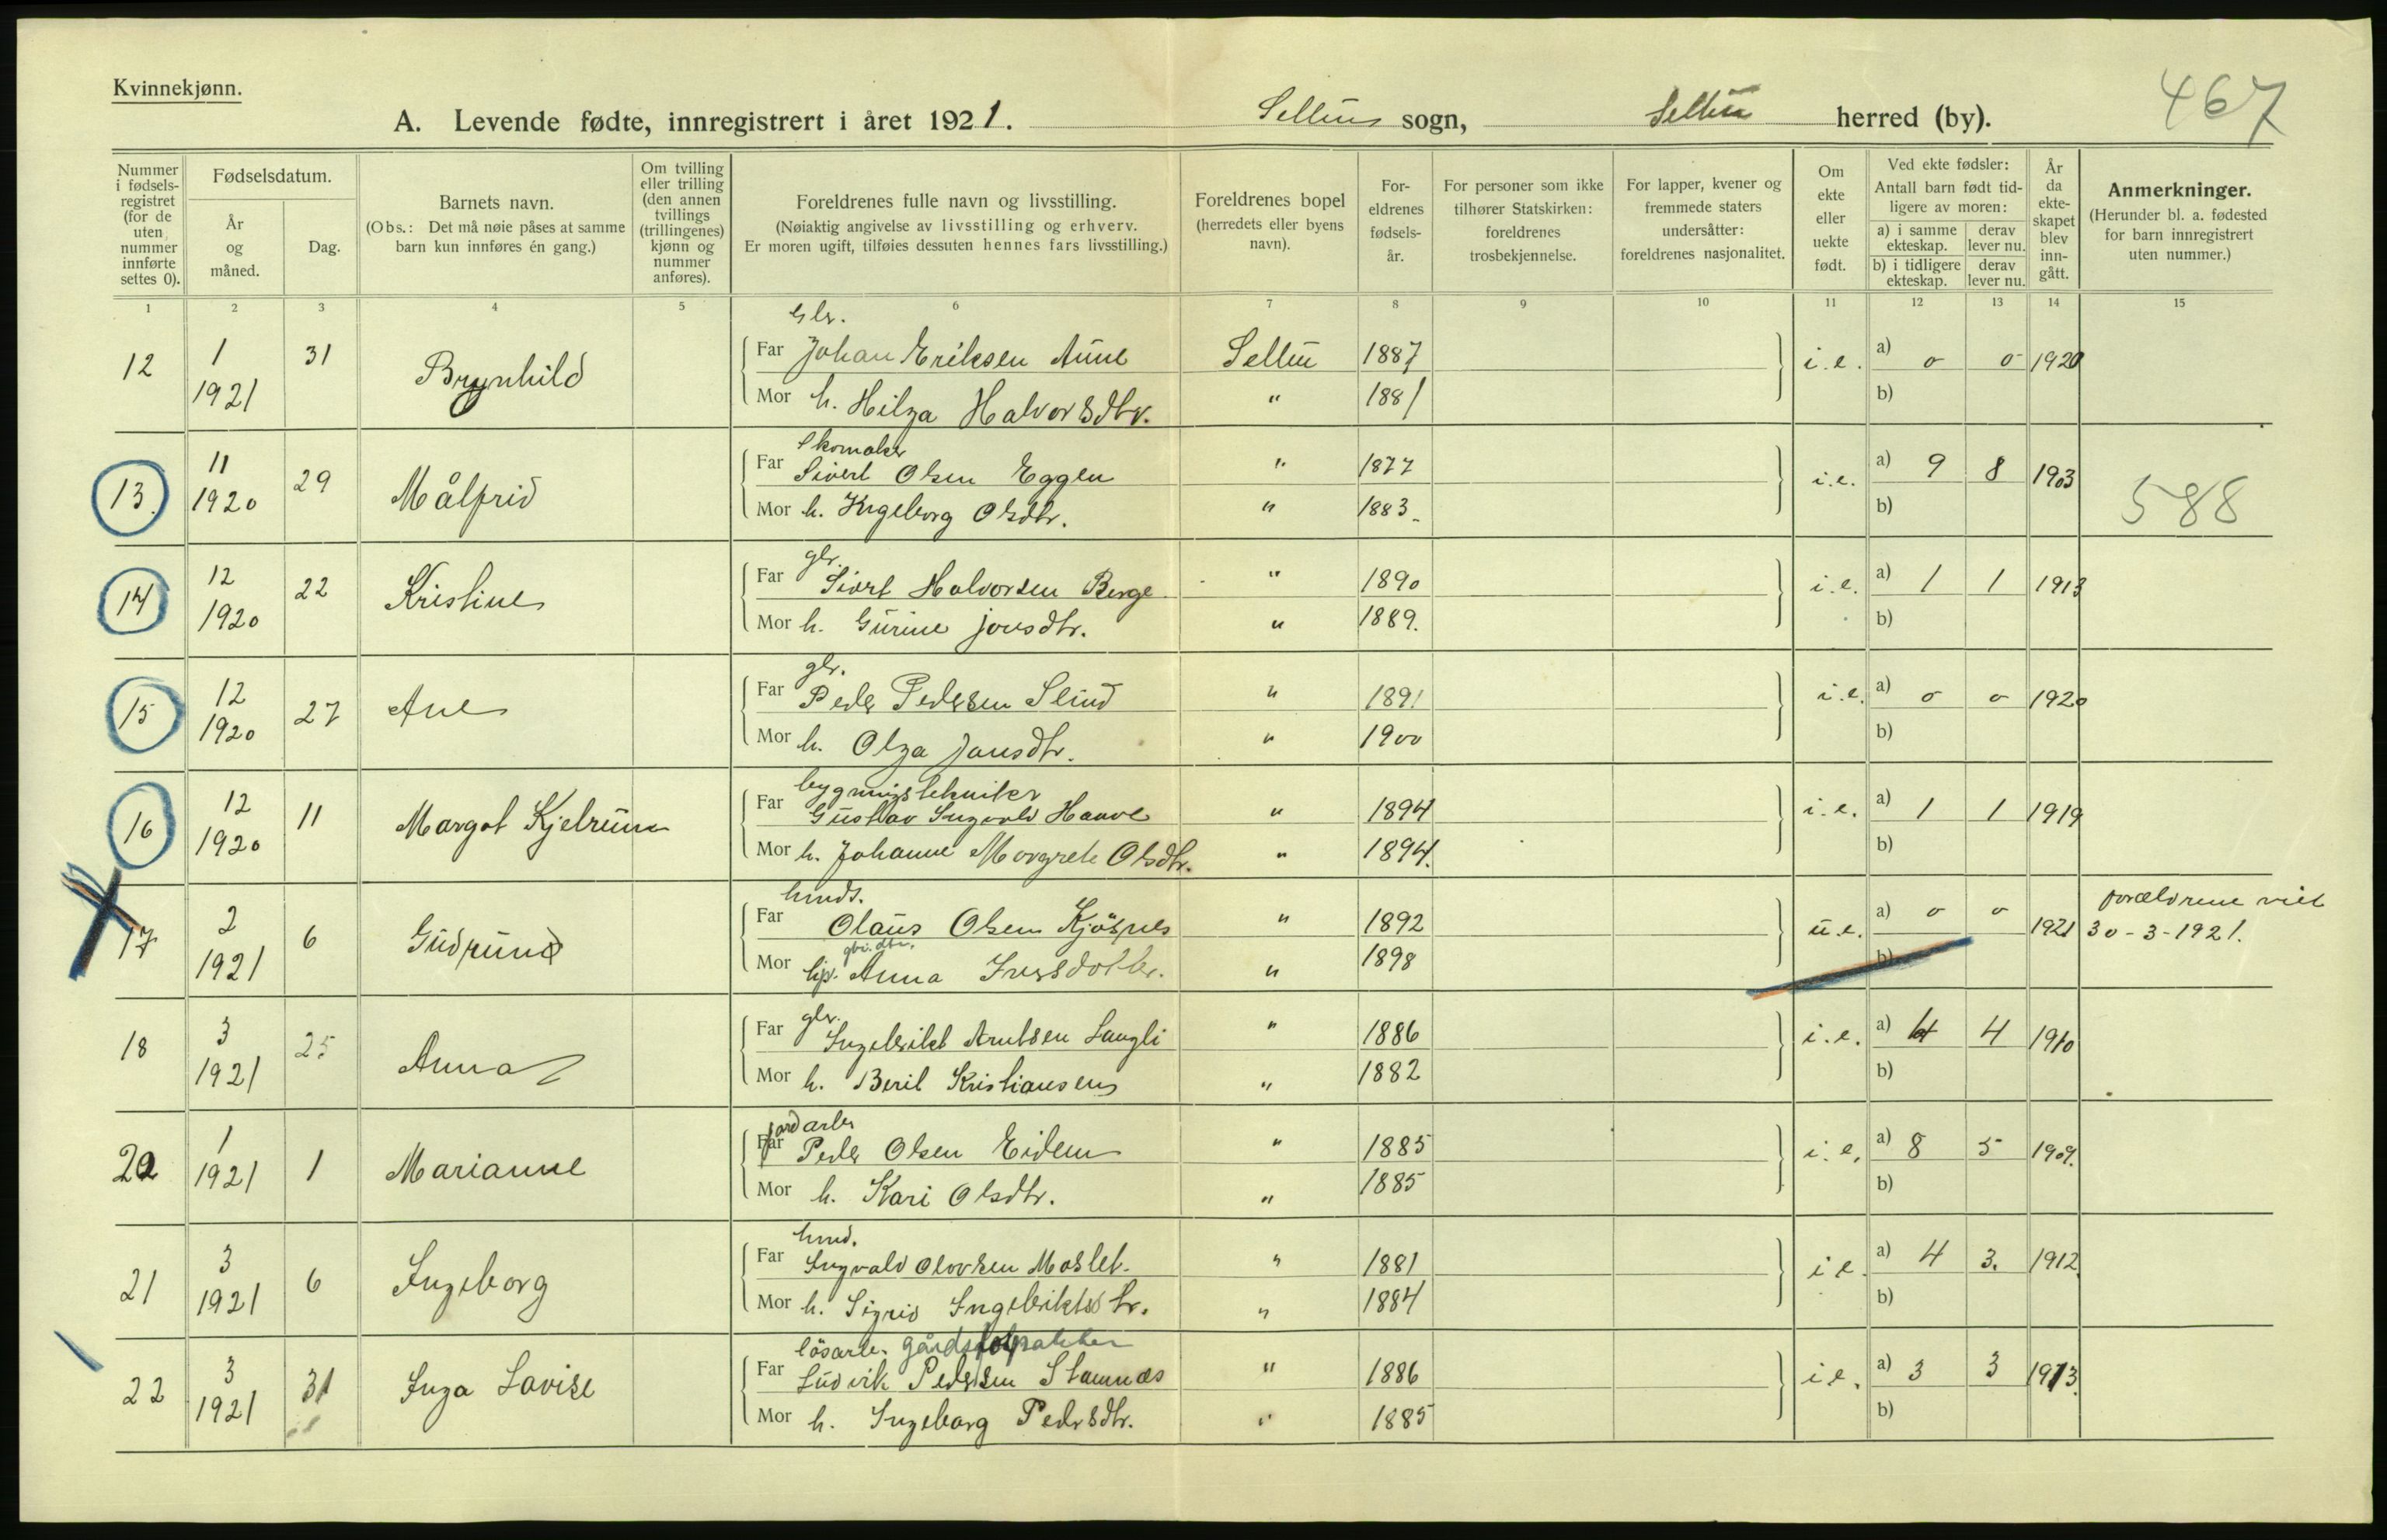 Kvinnekjønn.
467
A. Levende fødte, innregistrert i året 1921. Selbu sogn, Selbu herred (by).
Nummer i fødsels-registret (for de uten nummer innførte settes 0).
Fødselsdatum.
År og måned.
Dag.
Barnets navn.
(Obs.: Det må nøie påses at samme barn kun innføres én gang.)
Om tvilling eller trilling (den annen tvillings (trillingenes) kjønn og nummer anføres).
Foreldrenes fulle navn og livsstilling.
(Nøiaktig angivelse av livsstilling og erhverv.
Er moren ugift, tilføies dessuten hennes fars livsstilling.)
Foreldrenes bopel (herredets eller byens navn).
For-eldrenes fødsels-år.
For personer som ikke tilhører Statskirken: foreldrenes trosbekjennelse.
For lapper, kvener og fremmede staters undersåtter: foreldrenes nasjonalitet.
Om ekte eller uekte født.
Ved ekte fødsler:
Antall barn født tid-ligere av moren:
a) i samme ekteskap. derav lever nu.
b) i tidligere ekteskap. derav lever nu.
År da ekte-skapet blev inn-gått.
Anmerkninger.
(Herunder bl. a. fødested for barn innregistrert uten nummer.)
1 2 3 4 5 6 7 8 9 10 11 12 13 14 15
gbr.
12 1 31 Brynhild Far Johan Eriksen Aune Selbu 1887 i.e. a) 0 0 1920
1921 Mor h. Hilga Halvorsdtr. " 1881 b)
Skomaker
13. 11 29 Målfrid Far Sivert Olsen Eggen " 1877 i.e. a) 9 8 1903
1920 Mor h. Ingeborg Olsdtr. " 1883 b) 588
gbr.
14 12 22 Kristine Far Sivert Halvorsen Berge " 1890 i.e. a) 1 1 1913
1920 Mor h. Gurine Jonsdtr. " 1889. b)
gbr.
15 12 27 Ane Far Peder Pedersen Slind " 1891 i.e. a) 0 0 1920
1920 Mor h. Olga Jonsdtr. " 1900 b)
bygningstekniker
16 12 11 Margot Kjelrun Far Gustav Ingvald Haave " 1894 i.e. a) 1 1 1919
1920 Mor h. Johanne Margrete Olsdtr. " 1894. b)
17 2 6 Gudrun Far Olaus Olsen Kjøsnes " 1892 u.e. a) 0 0 1921 forældrene viet 30-3-1921.
1921 Mor Anna Iversdotter. " 1898 b)
gbr.
18 3 25 Anna Far Ingebrikt Arntsen Langli " 1886 i.e. a) 4 4 1910
1921 Mor h. Berit Kristiansen " 1882 b)
jordarb
20 1 1 Marianne Far Peder Olsen Eidem " 1885 i.e. a) 8 5 1909.
1921 Mor h. Kari Olsdtr. " 1885 b)
21 3 6 Ingeborg Far Ingvald Olovsen Moslet. " 1881 i.e. a) 4 3. 1912
1921 Mor h. Sigrid Ingebriktsdtr. " 1884 b)
løsarb. gårdsforpakter
22 3 31 Inga Lovise Far Ludvik Pedersen Stamnæs " 1886 i.e. a) 3 3 1913.
1921 Mor h. Ingeborg Pedersdtr. " 1885 b)